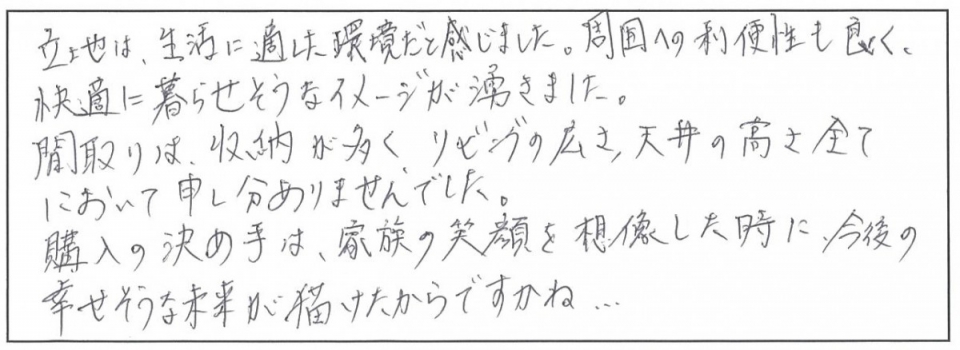 立地は、生活に適した環境だと感じました。周囲への利便性も良く、
快適に暮らせそうなイメージが湧きました。
間取りは、収納が多く、リビングの広さ、天井の高さ全て
において申し分ありませんでした。
購入の決め手は、家族の笑顔を想像した時に、今後の
幸せそうな未来が描けたからですかね…